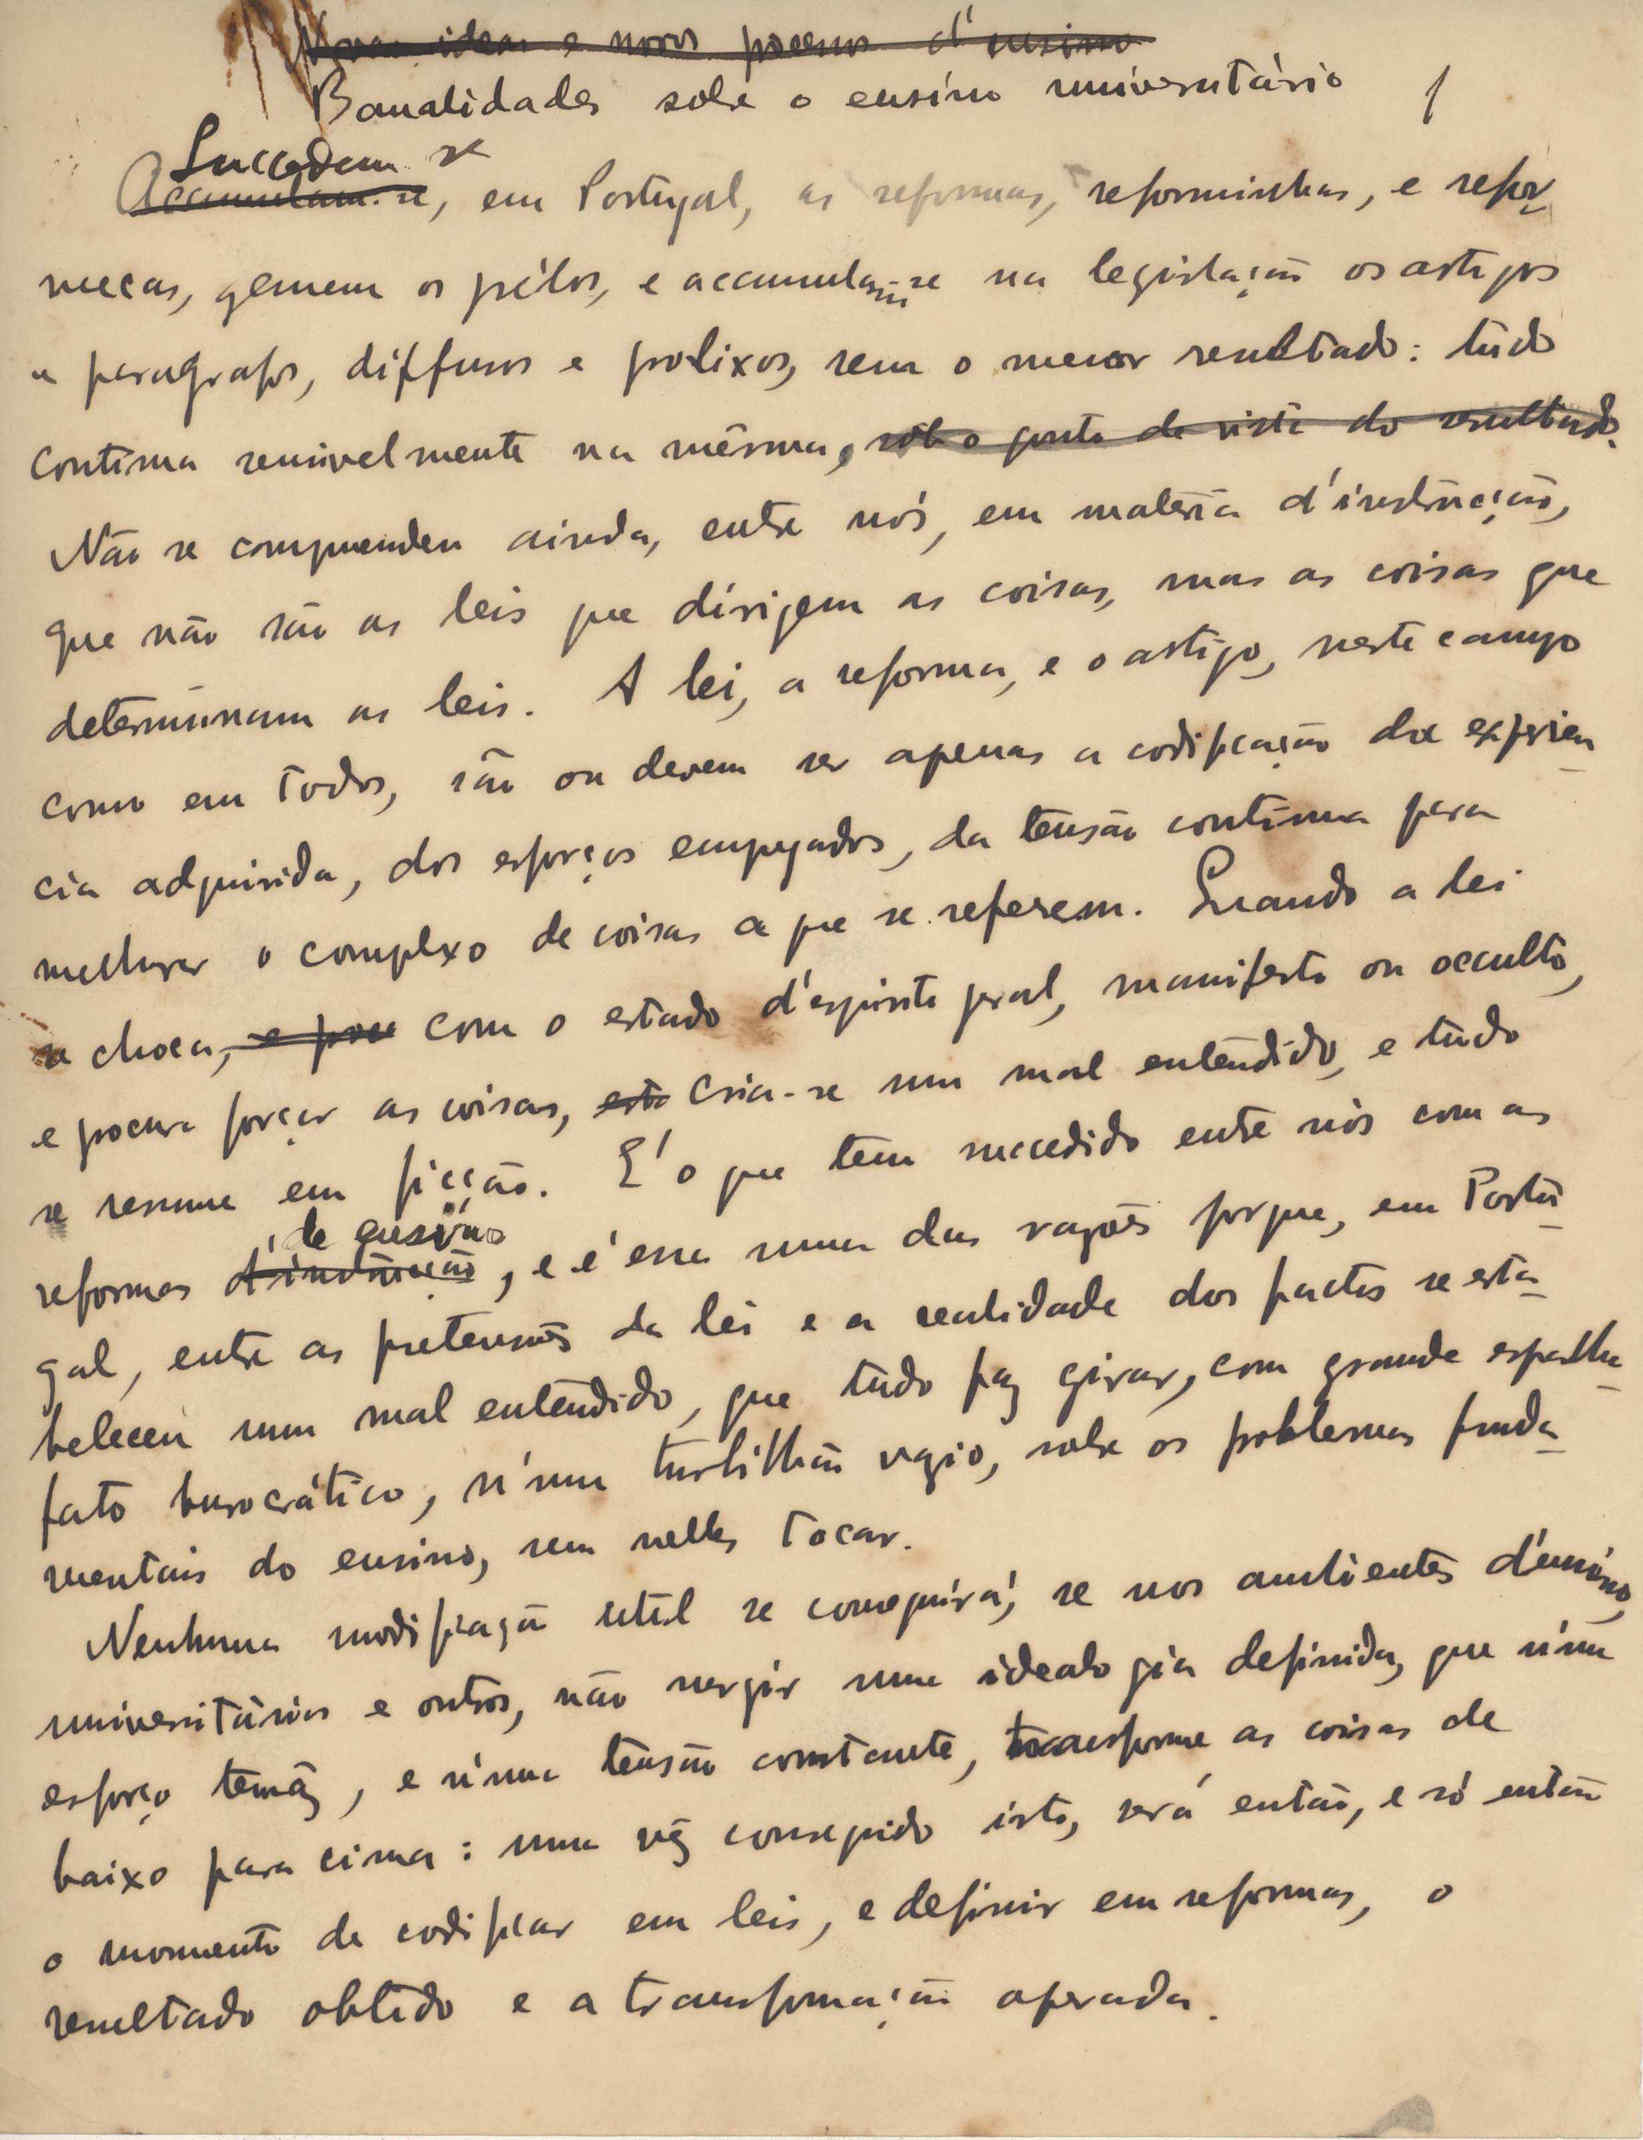 Novas ideas e novos processos d'ensino
Banalidades sobre o ensino universitário 1
Succedem se
Accumulam-se, em Portugal, as reformas, reforminhas, e refor-
mecas, gemem os prélos, e accumulam-se na legislação os artigos
e paragrafos, diffusos e prolixos, sem o menor resultado: tudo
continua sensivelmente na mêsma, sob o ponto de vista do resultado.
Não se comprendeu ainda, entre nós, em materia d'instrucção,
que não são as leis que dirigem as coisas, mas as coisas que
determinam as leis. A lei, a reforma, e o artigo, neste campo
como em todos, são ou devem ser apenas a codificação da experien-
cia adquirida, dos esforços empregados, da tensão continua para
melhorar o complexo de coisas a que se referem. Quando a lei
se choca, e proc com o estado d'espirito geral, manifesto ou occulto,
e procura forçar as coisas, esta cria-se um mal entendido, e tudo
se resume em ficção. E' o que tem succedido entre nós com as
de ensino
reformas d'instrucção, e é essa uma das razões porque, em Portu-
gal, entre as pretensões da lei e a realidade dos factos se esta-
beleceu um mal entendido, que tudo faz girar, com grande espalha-
fato burocrático, n'um turbilhão vazio, sobre os problemas funda-
mentais do ensino, sem nelles tocar.
Nenhuma modificação util se conseguirá, se nos ambientes d'ensino,
universitários e outros, não surgir uma idealogia definida, que n'um
esforço tenáz, e n'uma tensão constante, transforme as coisas de
baixo para cima: uma vêz conseguido isto, será então, e só então
o momento de codificar em leis, e definir em reformas, o
resultado obtido e a transformação operada.